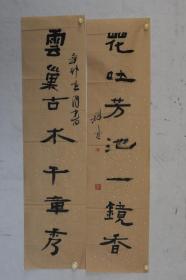 花吐芳池一鏡香
雲巢古木千章秀